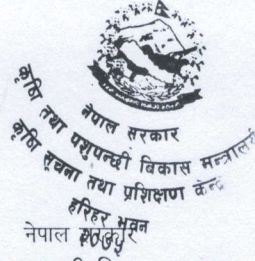 नेपाल सरकार
कृषि तथा पशुपन्छी बिकास मन्त्रालय
कृषि सूचना तथा प्रशिक्षण केन्द्र
हरिहर भवन
२०७५
नेपाल सरकार